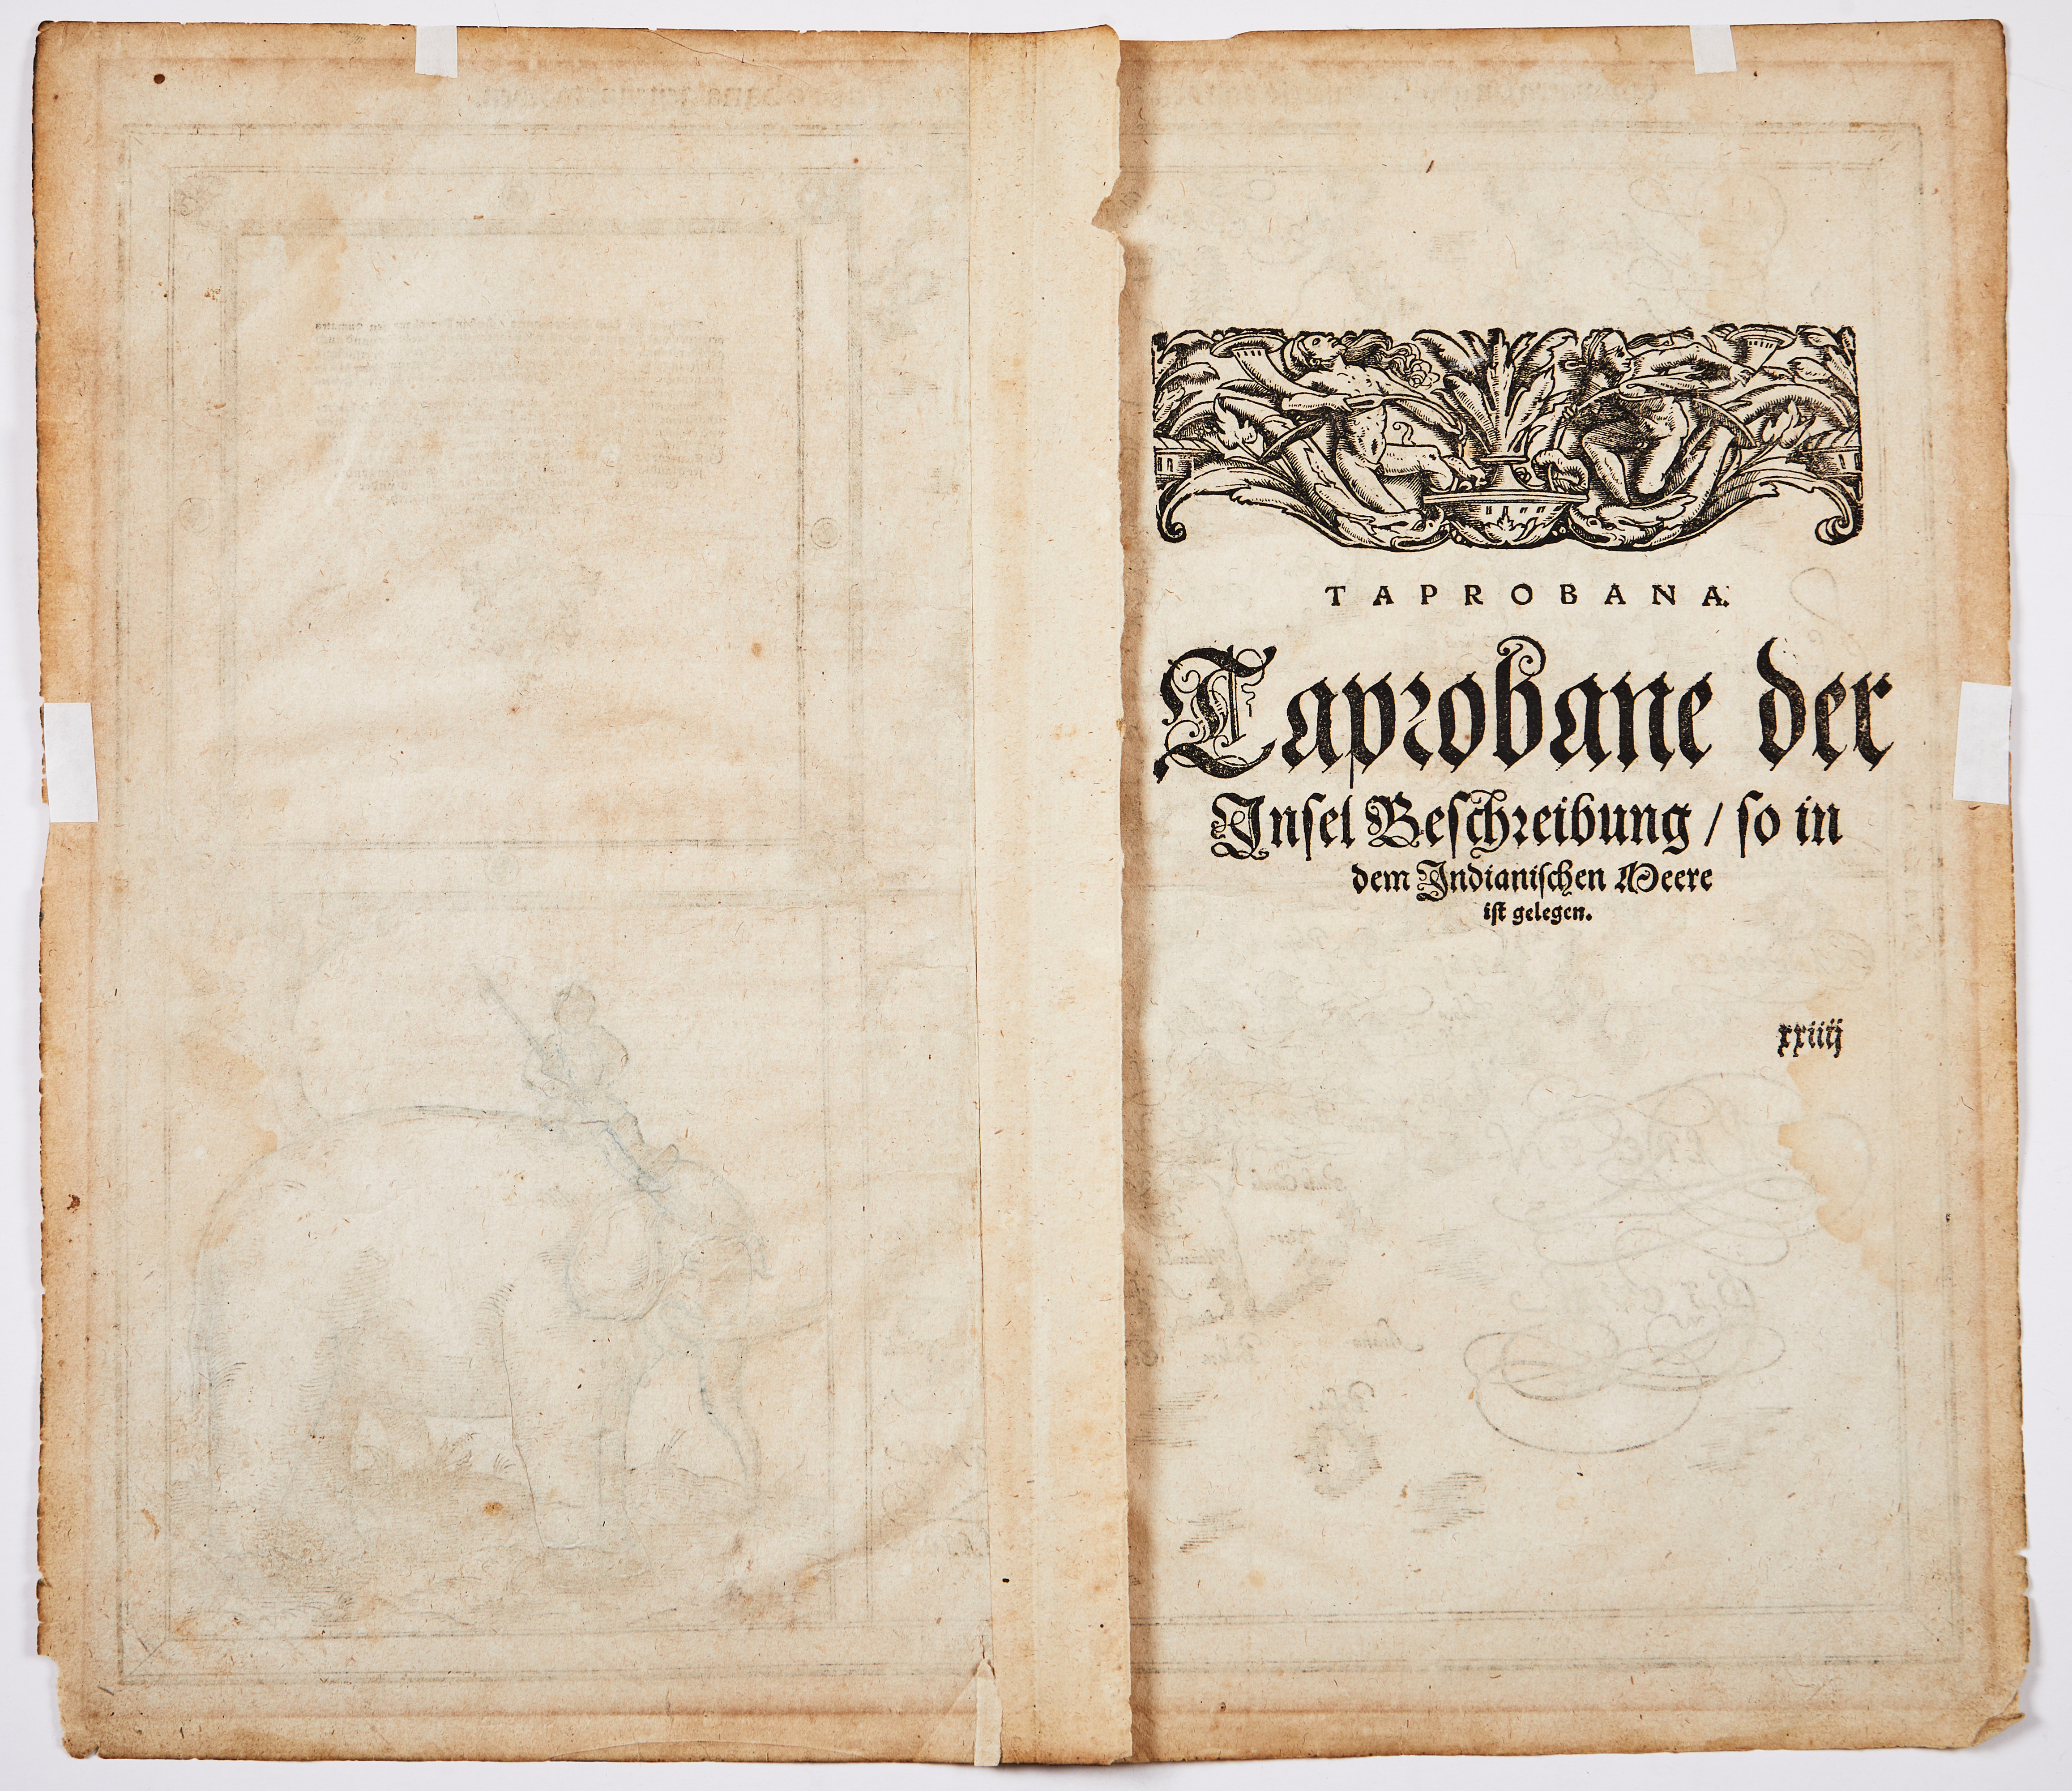 TAPROBANA.
Taprobane der
Insel Beschreibung / so in
dem Indianischen Meere
ist gelegen.
xxiiij